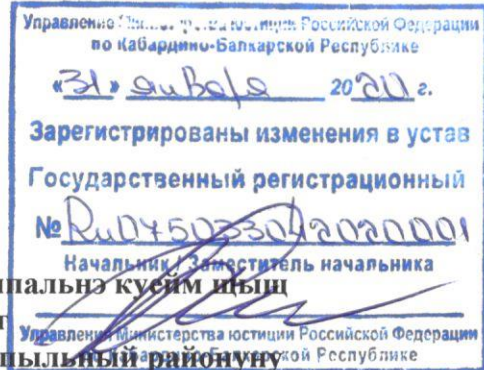 Управление Министерства юстиции Российской Федерации
по Кабардино-Балкарской Республике
«31» января 2020 г.
Зарегистрированы изменения в устав
Государственный регистрационный
№ Ru075033042020001
Начальник / Заместитель начальника
пальнэ куейм щыщ
Управления Министерства юстиции Российской Федерации
по Кабардино-Балкарской Республике
пыльный районуну